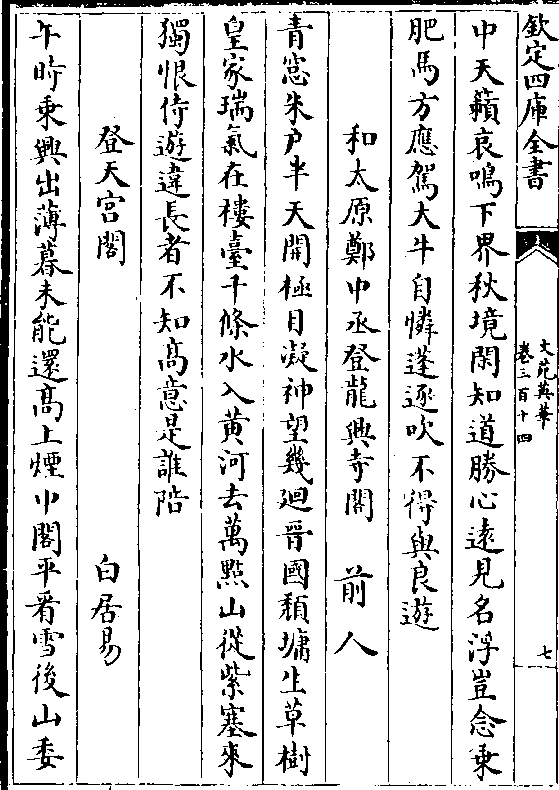 欽定四庫全書
文苑英華
卷三百十四
七
中天籟哀鳴下界秋境閑知道勝心遠見名浮豈念乗
肥馬方應駕大牛自憐蓬逐吹不得與良遊
和太原鄭中丞登龍興寺閣 前人
青窓朱户半天開極目凝神望幾廻晉國頽墉生草樹
皇家瑞氣在樓臺千條水入黄河去萬點山從紫塞來
獨恨侍遊違長者不知髙意是誰陪
登天宫閣 白居易
午時乗興出薄暮未能還髙上煙中閣平看雪後山委